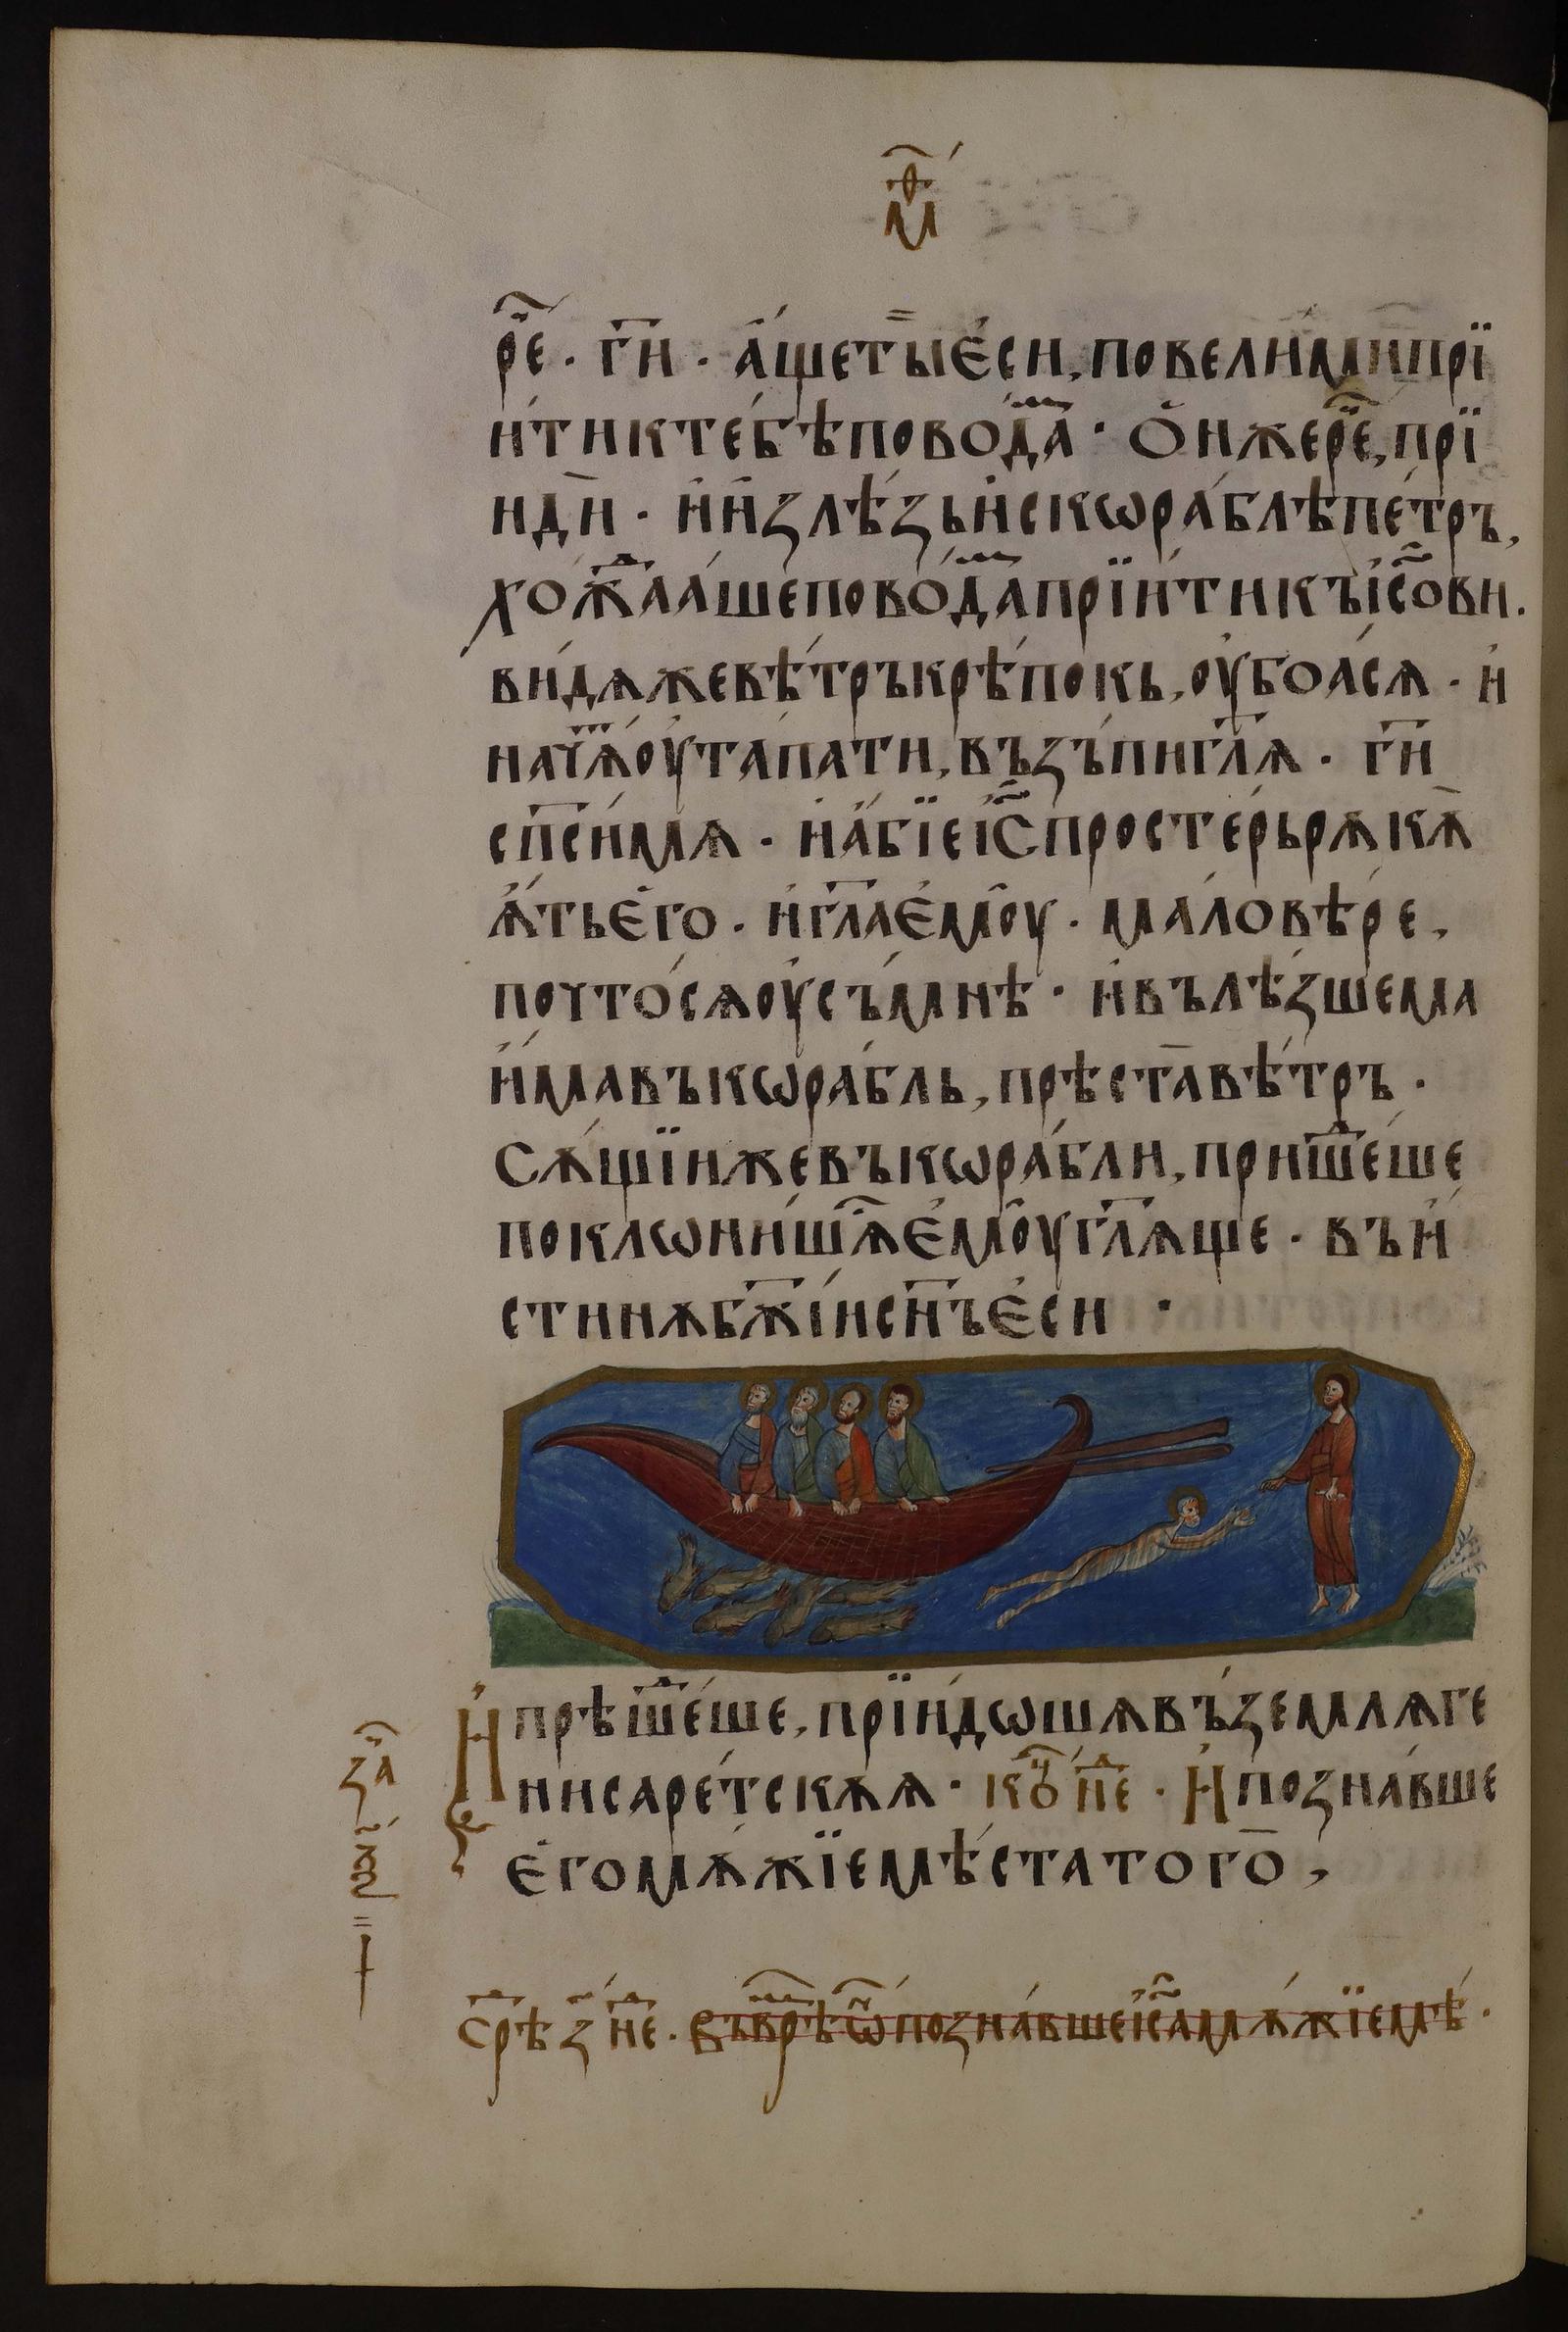 мⷴ҇
рⷱ҇е · г҃и · а҆́щеты̀е҆сѝ, повели́мипрї
и́тиктебѣ́повода́мⷨ · Ѻ҆нжерⷱ҇е, прї
идѝ · и҆и҆злѣ́зьи҆скѡра́блѣпе́тръ,
хожⷣа́а́шеповода́мⷨпрїи́тикъі҆с҃ови .
ви́дѧжевѣ́тръкрѣ́покь, оу҆боа́сѧ · и҆
начѧ́тⷮоу҆та́пати, въ́зъпиг҃лѧ · г҃и
сп҃си́мѧ · и҆а҆́бїеі҆с҃просте́рьрѫкѫ̀
ѧ҆́тье҆го · и҆г҃лае҆моу̀ · мало́вѣре ,
почто́сѧоу҆съ́мнѣ · и҆вълѣ́зшема
и҆́мавъкѡра́бль, прѣста̀вѣ́тръ ·
Сѫ́щїижевъкѡра́бли, пришеⷣ́ше
поклѡни́шѧсⷭ҇е҆моуг҃лѧще · въи҆́
стинѫбж҃їисн҃ъе҆сѝ ·
И҆прѣшеⷣ́ше, прїи́дѡшѧвъзе́млѧге
нисаре́тскѫѧ · коⷩ҇не́ⷣ · И҆позна́вше
е҆гомѫ́жїемѣ́статого̀ ,
за҃ч
н҃з
срⷣѣз҃неⷣ · Въврⷨѣѡ҆нпозна́вшеі҆с҃амѫ́жїемѣ́ ·